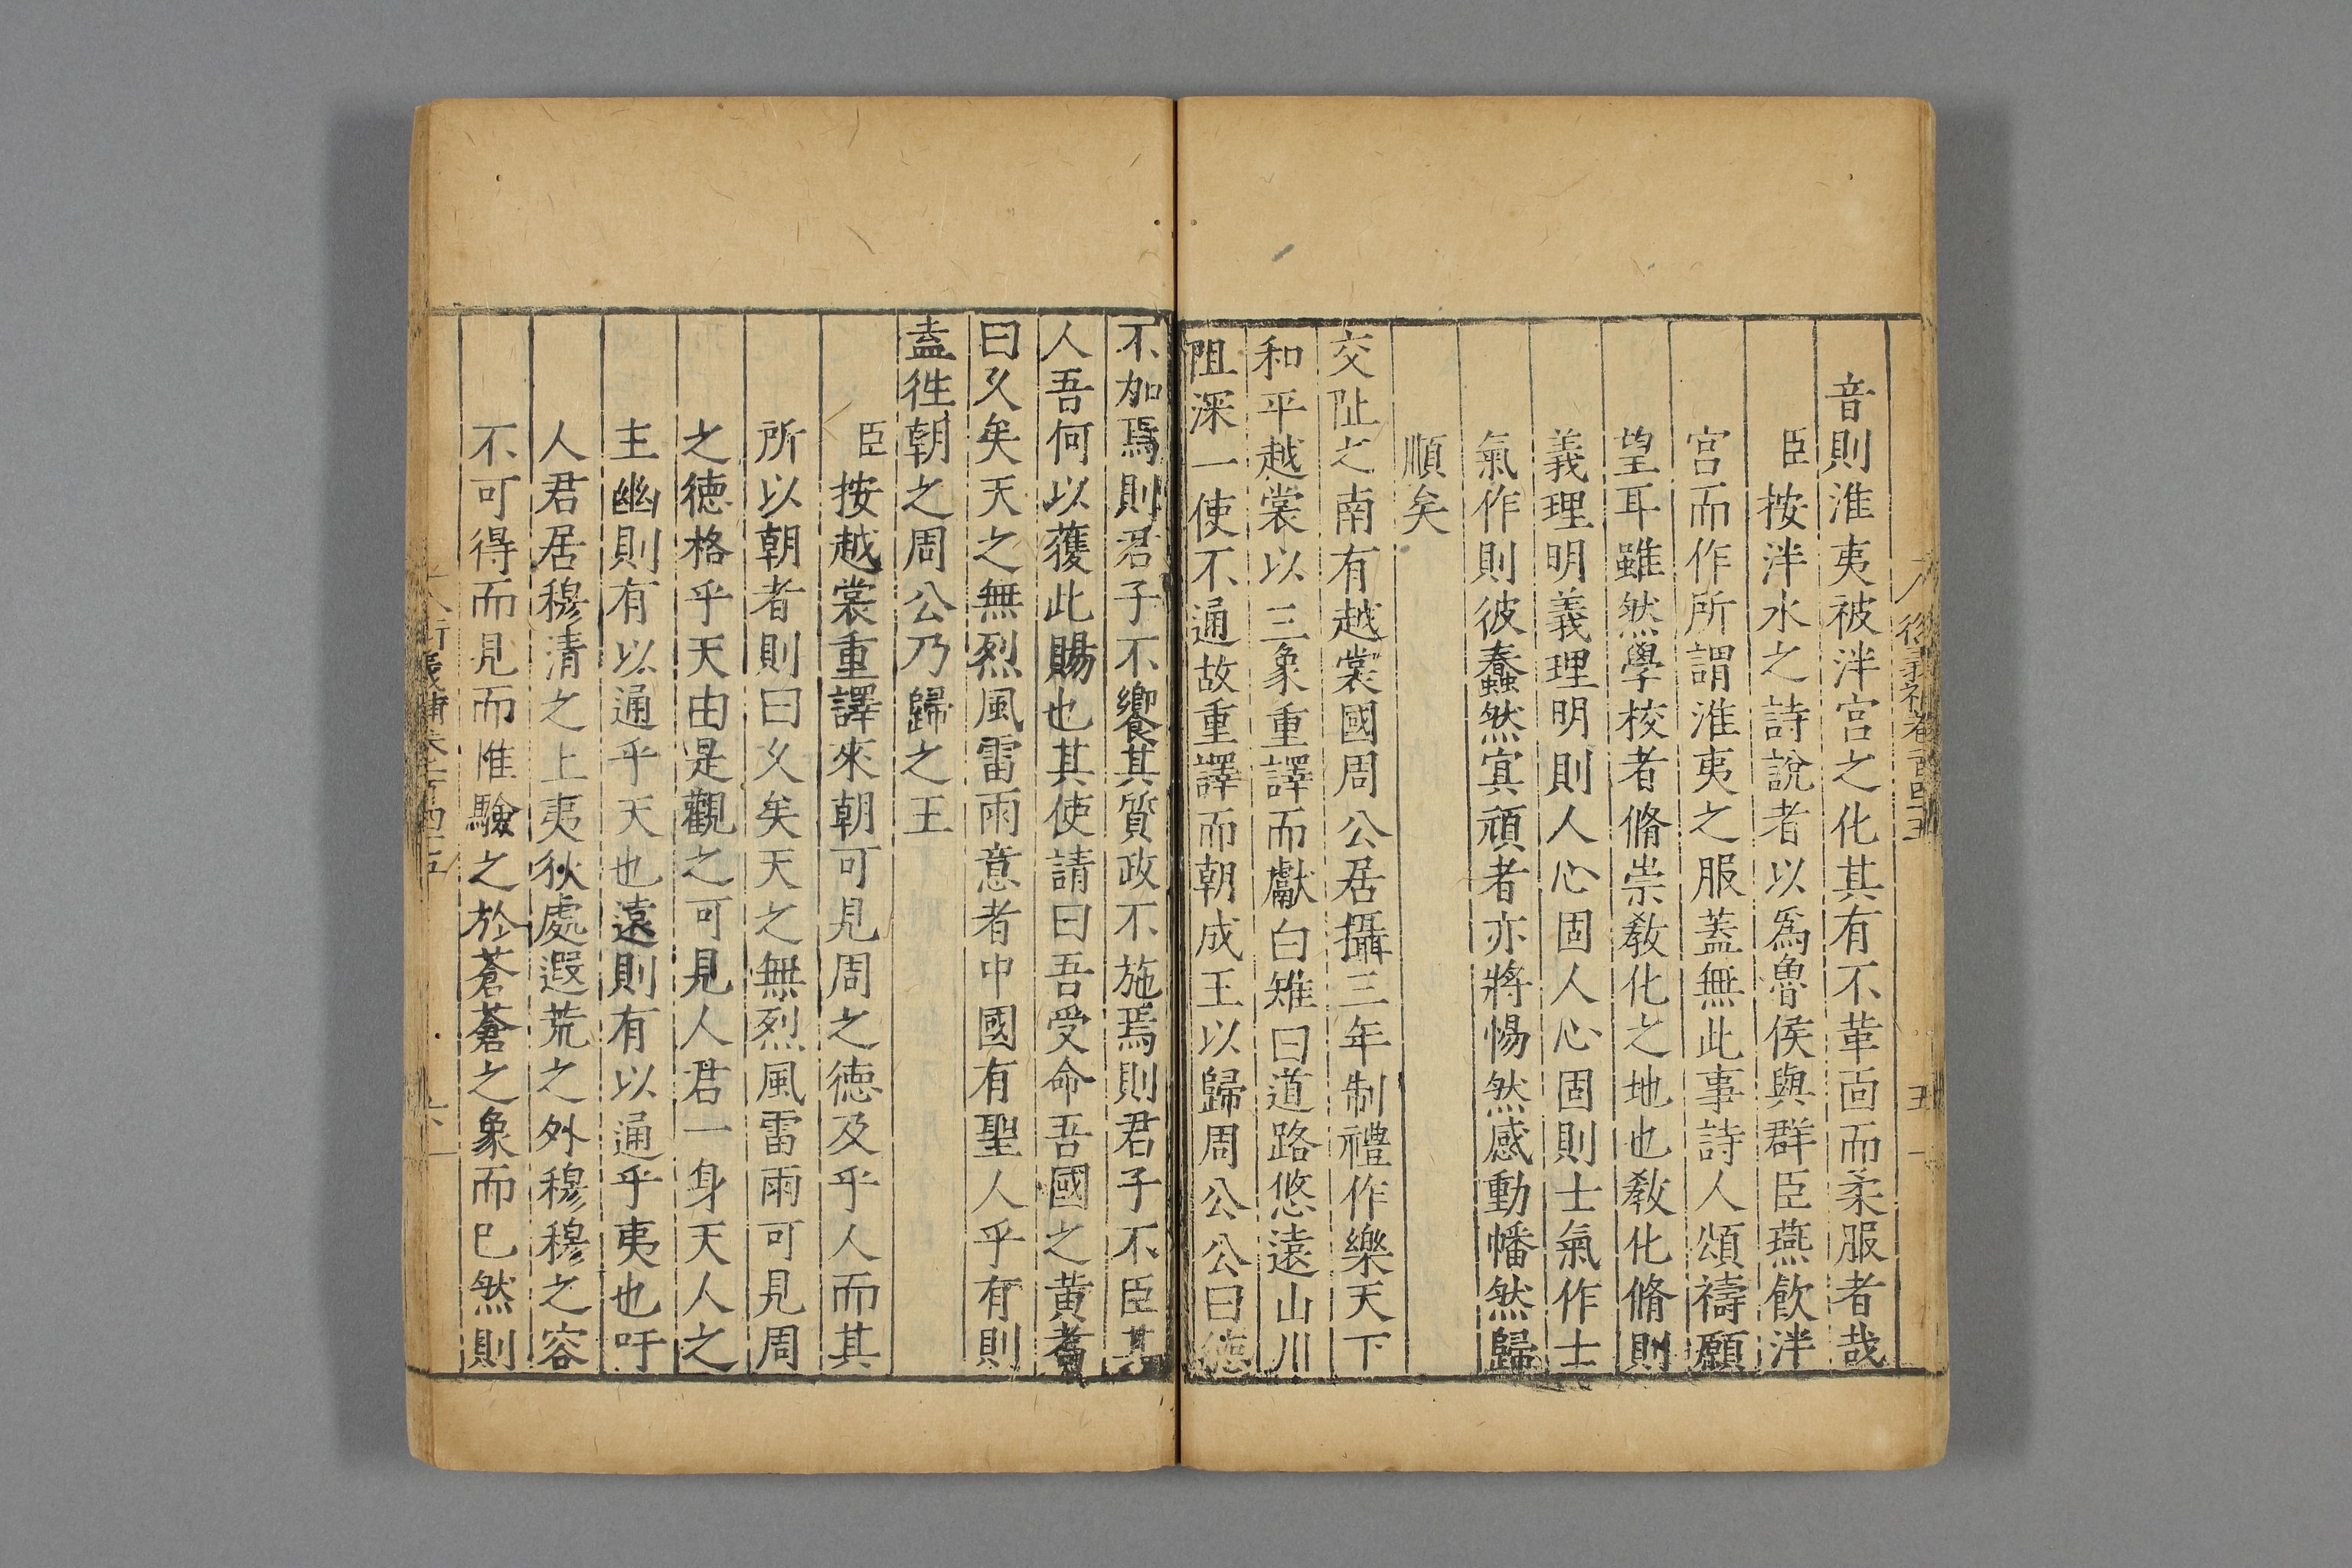 衍義補卷一百四十五
五
音則淮夷被泮宮之化其有不革靣而柔服者哉
臣按泮水之詩說者以爲魯侯與群臣燕飲泮
宮而作所謂淮夷之服蓋無此事詩人頌禱願
望耳雖然學校者脩崇教化之地也教化脩則
義理明義理明則人心固人心固則士氣作士
氣作則彼蠢然冥頑者亦將惕然感動幡然歸
順矣
交阯之南有越裳國周公居攝三年制禮作樂天下
和平越裳以三象重譯而獻白雉曰道路悠遠山川
阻深一使不通故重譯而朝成王以歸周公公曰德
不加焉則君子不饗其質政不施焉則君子不臣其
人吾何以獲此賜也其使請曰吾受命吾國之黃耉
曰久矣天之無烈風雷雨意者中國有聖人乎有則
盍徃朝之周公乃歸之王
臣按越裳重譯來朝可見周之德及乎人而其
所以朝者則曰久矣天之無烈風雷雨可見周
之德格乎天由是觀之可見人君一身天人之
主幽則有以通乎天也遠則有以通乎夷也吁
人君居穆清之上夷狄處遐荒之外穆穆之容
不可得而見而惟驗之於蒼蒼之象而已然則
衍義補卷一百四十五
六